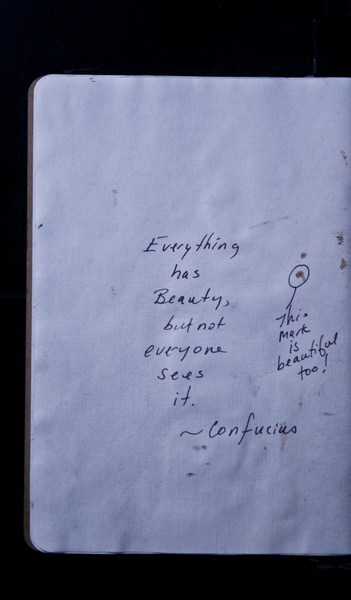 Everything
has
Beauty,
but not
everyone
sees
it.
~Confucius
This
mark
is
beautiful
too!